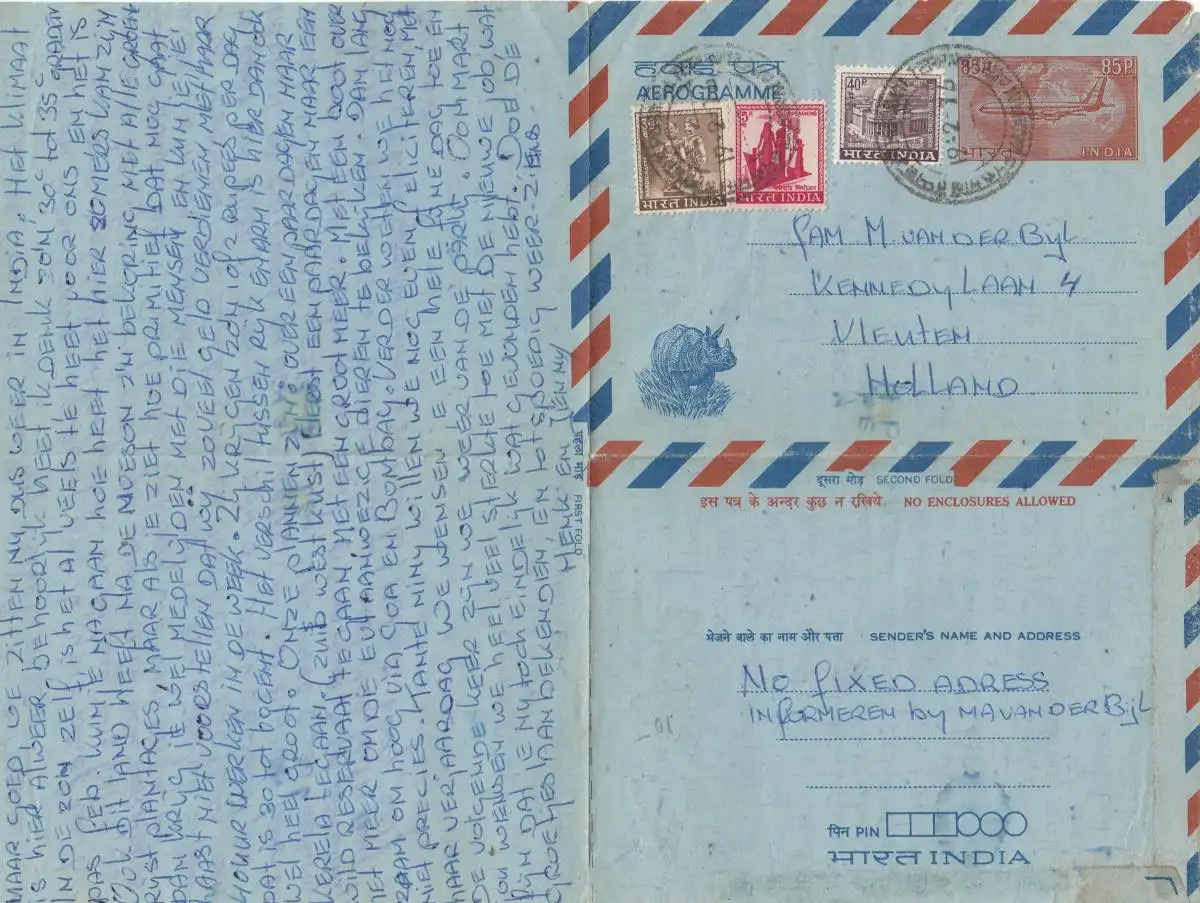 MAAR GOED WE ZITTEN NY DUS WEER IN INDIA. HET KLIMAAT
IS HIER ALWEER BEHOORLYK HEET IK DENK ZO'N 30° TOT 35° GRADEN
IN DE ZON ZELF IS HET AL VEELS TE HEET VOOR ONS EN HET IS
PAS FEB KUN JE NAGAAN HOE HEET HET HIER SOMERS KAN ZIJN
OOK DIT LAND HEEFT NA DE MOESON Z'N BEKORING MET ALLE GROENE
RYST PLANTAGES MAAR ALS JE ZIET HOE PRIMITIEF DAT NOG GAAT
DAN KRYG JE WEL MEDELYDEN MET DIE MENSEN EN KUN JE JE
HAAST NIET VOORSTELLEN DAT WY ZOVEEL GELD VERDIENEN MET HAAR
40 UUR WERKEN IN DE WEEK. ZY KRYGEN ZO'N 1 OF 2 RUPEES PER DAG
DAT IS 30 TOT 60 CENT. HET VERSCHIL TUSSEN RYK EN ARM IS HIER DAN OOK
WEL HEEL GROOT. ONZE PLANNEN ZYN OVER EEN PAAR DAGEN NAAR
KERELA TE GAAN (ZUID WEST KUST) EERST EEN PAAR DAGEN NAAR EEN
WILD RESERVAAT TE GAAN, MET EEN GROOT MEER. MET EEN BOOT OVER
HET MEER OM DE EVT AANWEZIGE DIEREN TE BEKIJKEN. DAN LANG
ZAAM OM HOOG VIA GOA EN BOMBAY. VERDER WETEN WE HET NOG
NIET PRECIES. TANTE MINY WILLEN WE NOG EVEN FELICITEREN, MET
HAAR VERJAARDAG WE WENSEN JE EEN HELE FYNE DAG TOE EN
DE VOLGENDE KEER ZYN WE WEER VAN DE PARTY. OOM MART
JOU WENSEN WE HEEL VEEL STERKTE TOE MET DE NIEUWE JOB WAT
FIJN DAT JE NY TOCH EINDELYK WAT GEVONDEN HEBT. DOE DE
GROETJES AAN BEKENDEN EN TOT SPOEDIG WEER ZIENS
HENK EN JENNY
पहला मोड़ FIRST FOLD
हवाई पत्र
AEROGRAMME
40P
85P.
भारत INDIA
भारत INDIA
भारत INDIA
भारत INDIA
FAM M. VAN DER BIJL
KENNEDY LAAN 4
VLEUTEN
HOLLAND
दूसरा मोड़ SECOND FOLD
इस पत्र के अन्दर कुछ न रखिये NO ENCLOSURES ALLOWED
भेजने वाले का नाम और पता SENDER'S NAME AND ADDRESS
NO FIXED ADRESS
INFORMEREN BY MA VAN DER BIJL
पिन PIN
भारत INDIA